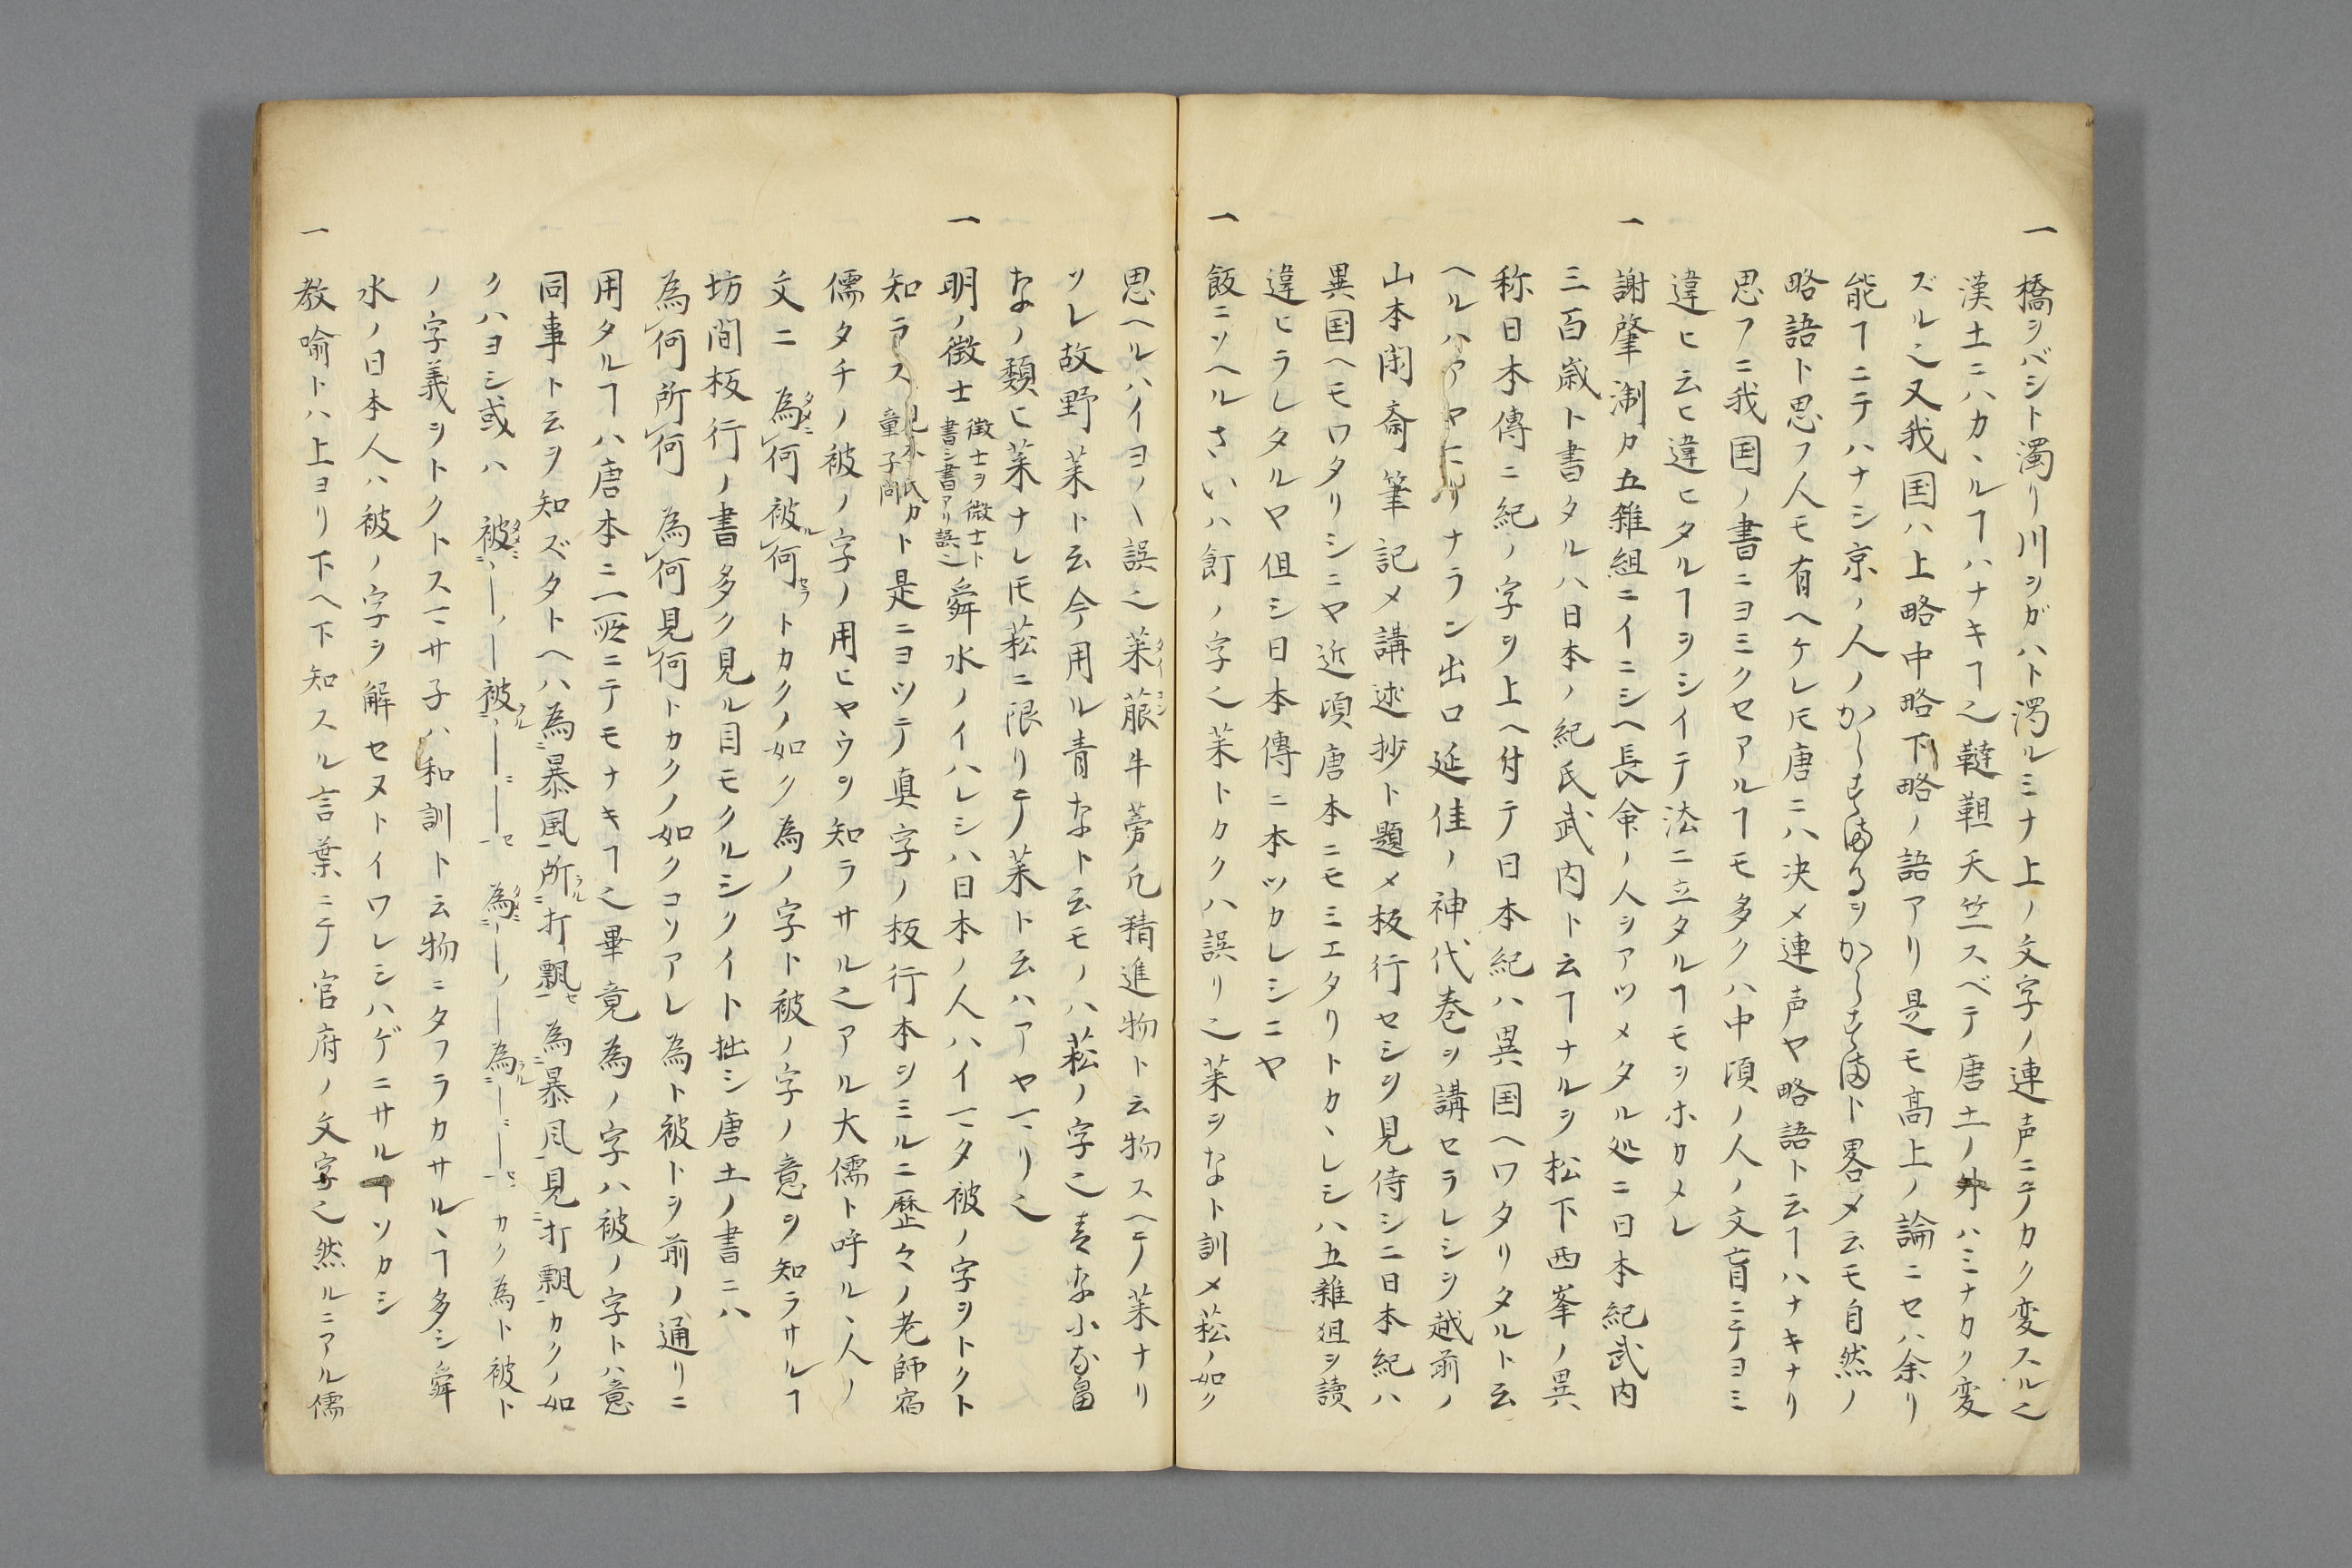 一 橋ヲバシト濁リ川ヲガハト濁ルミナ上ノ文字ノ連声ニテカク変スル也
漢土ニハカヽルヿハナキヿ也韃靼天竺スベテ唐土ノ外ハミナカク変
ズル也又我国ハ上略中略下略ノ語アリ是モ高上ノ論ニセハ余リ
能ヿニテハナシ京ノ人ノからすまるヲからすまト畧メ云モ自然ノ
略語ト思フ人モ有ヘケレ𪜈唐ニハ决メ連声ヤ略語ト云ヿハナキナリ
思フニ我国ノ書ニヨミクセアルヿモ多クハ中頃ノ人ノ文盲ニテヨミ
違ヒ云ヒ違ヒタルヿヲシイテ法ニ立タルヿモヲホカメレ
一 謝肇淛カ五雜組ニイニシヘ長命ノ人ヲアツメタル処ニ日本紀武内
三百歳ト書タルハ日本ノ紀氏武内ト云ヿナルヲ松下西峯ノ異
称日本傳ニ紀ノ字ヲ上ヘ付テ日本紀ハ異国ヘワタリタルト云
ヘルハアヤマリナラン出口延佳ノ神代巻ヲ講セラレシヲ越前ノ
山本閑斎筆記メ講述抄ト題メ板行セシヲ見侍シニ日本紀ハ
異国ヘモワタリシニヤ近頃唐本ニモミエタリトカヽレシハ五雜俎ヲ讀
違ヒラレタルヤ但シ日本傳ニ本ツカレシニヤ
一 飯ニソヘルさいハ飣ノ字也菜トカクハ誤リ也菜ヲなト訓メ菘ノ如ク
思ヘルハイヨ〳〵誤也菜菔牛蒡凡精進物ト云物スヘテ菜ナリ
ソレ故野菜ト云今用ル青なト云モノハ菘ノ字也青な小な畠
なノ類ヒ菜ナレ𪜈菘ニ限リテ菜ト云ハアヤマリ也
一 明ノ徴士徴士ヲ微士ト書シ書アリ誤也舜水ノイハレシハ日本ノ人ハイマタ被ノ字ヲトクト
知ラス童子問カト是ニヨツテ真字ノ板行本ヲミルニ歴々ノ老師宿
儒タチノ被ノ字ノ用ヒヤウヲ知ラサル也アル大儒ト呼ルヽ人ノ
文ニ 為何被何トカクノ如ク為ノ字ト被ノ字ノ意ヲ知ラサルヿ
坊間板行ノ書多ク見ル目モクルシクイト拙シ唐土ノ書ニハ
為何所何 為何見何トカクノ如クコソアレ為ト被トヲ前ノ通リニ
用タルヿハ唐本ニ一処ニテモナキヿ也畢竟為ノ字ハ被ノ字トハ意
同事ト云ヲ知ズタトヘハ為暴風所打飄 為暴風見打飄カクノ如
クハヨシ或ハ 被 被 為 為 カク為ト被ト
ノ字義ヲトクトスマサ子ハ和訓ト云物ニタフラカサルヽヿ多シ舜
水ノ日本人ハ被ノ字ヲ解セヌトイワレシハゲニサルヿソカシ
一 教喻トハ上ヨリ下ヘ下知スル言葉ニテ官府ノ文字也然ルニアル儒